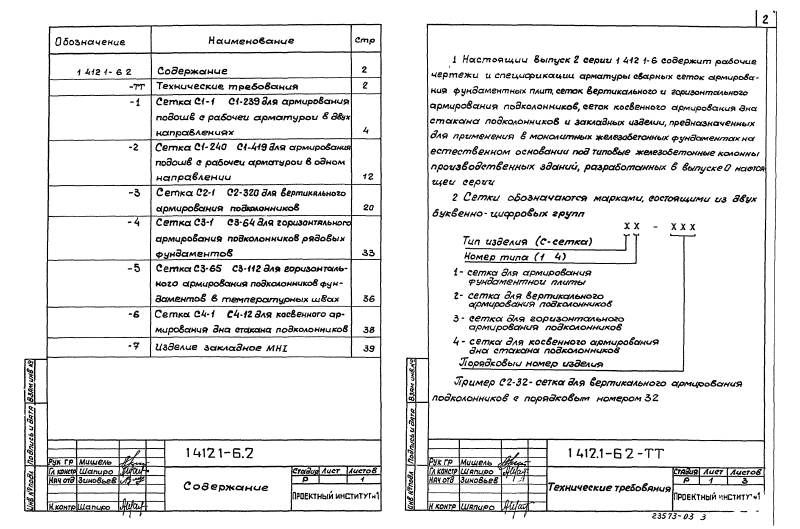 2
Обозначение Наименование Стр
1 412 1- 6 2 Содержание 2
-ТТ Технические требования 2
-1 Сетка С1-1 С1-239 для армирования
подошв с рабочей арматурой в двух
направлениях 4
-2 Сетка С1-240 С1-419 для армирования
подошв с рабочей арматурой в одном
направлении 12
-3 Сетка С2-1 С2-320 для вертикального
армирования подколонников 20
-4 Сетка С3-1 С3-64 для горизонтального
армирования подколонников рядовых
фундаментов 33
-5 Сетка С3-65 С3-112 для горизонталь-
ного армирования подколонников фун-
даментов в температурных швах 36
-6 Сетка С4-1 С4-12 для косвенного ар-
мирования дна стакана подколонников 38
-7 Изделие закладное МН1 39
Взам инв №
Подпись и дата
Инв № подл
1 412 1-6.2
Рук гр Мишель
Гл констр Шапиро
Нач отд Зиновьев
Н. контр Шапиро
Содержание
Стадия Лист Листов
Р 1
ПРОЕКТНЫЙ ИНСТИТУТ №1
1 Настоящий выпуск 2 серии 1 412 1-6 содержит рабочие
чертежи и спецификации арматуры сварных сеток армирова-
ния фундаментных плит, сеток вертикального и горизонтального
армирования подколонников, сеток косвенного армирования дна
стакана подколонников и закладных изделий, предназначенных
для применения в монолитных железобетонных фундаментах на
естественном основании под типовые железобетонные колонны
производственных зданий, разработанных в выпуске 0 настоя
щей серии
2 Сетки обозначаются марками, состоящими из двух
буквенно-цифровых групп
XX - XXX
Тип изделия (С-сетка)
Номер типа (1 4)
1- сетка для армирования
фундаментной плиты
2- сетка для вертикального
армирования подколонников
3- сетка для горизонтального
армирования подколонников
4- сетка для косвенного армирования
дна стакана подколонников
Порядковый номер изделия
Пример С2-32- сетка для вертикального армирования
подколонников с порядковым номером 32
Взам инв №
Подпись и дата
Инв № подл
1 412.1-6 2 -ТТ
Рук гр Мишель
Гл констр Шапиро
Нач отд Зиновьев
Н контр Шапиро
Технические требования
Стадия Лист Листов
Р 1 3
ПРОЕКТНЫЙ ИНСТИТУТ №1
23573-03 3